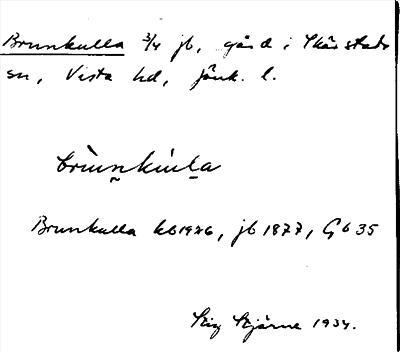 Brunkulla 3/4 jb, gård i Skärstads
sn, Vista hd, Jönk. l.
brùn̰kúl̰a
Brunkulla kb1926, jb 1877, Gb 35
Stig Stjärne 1934.